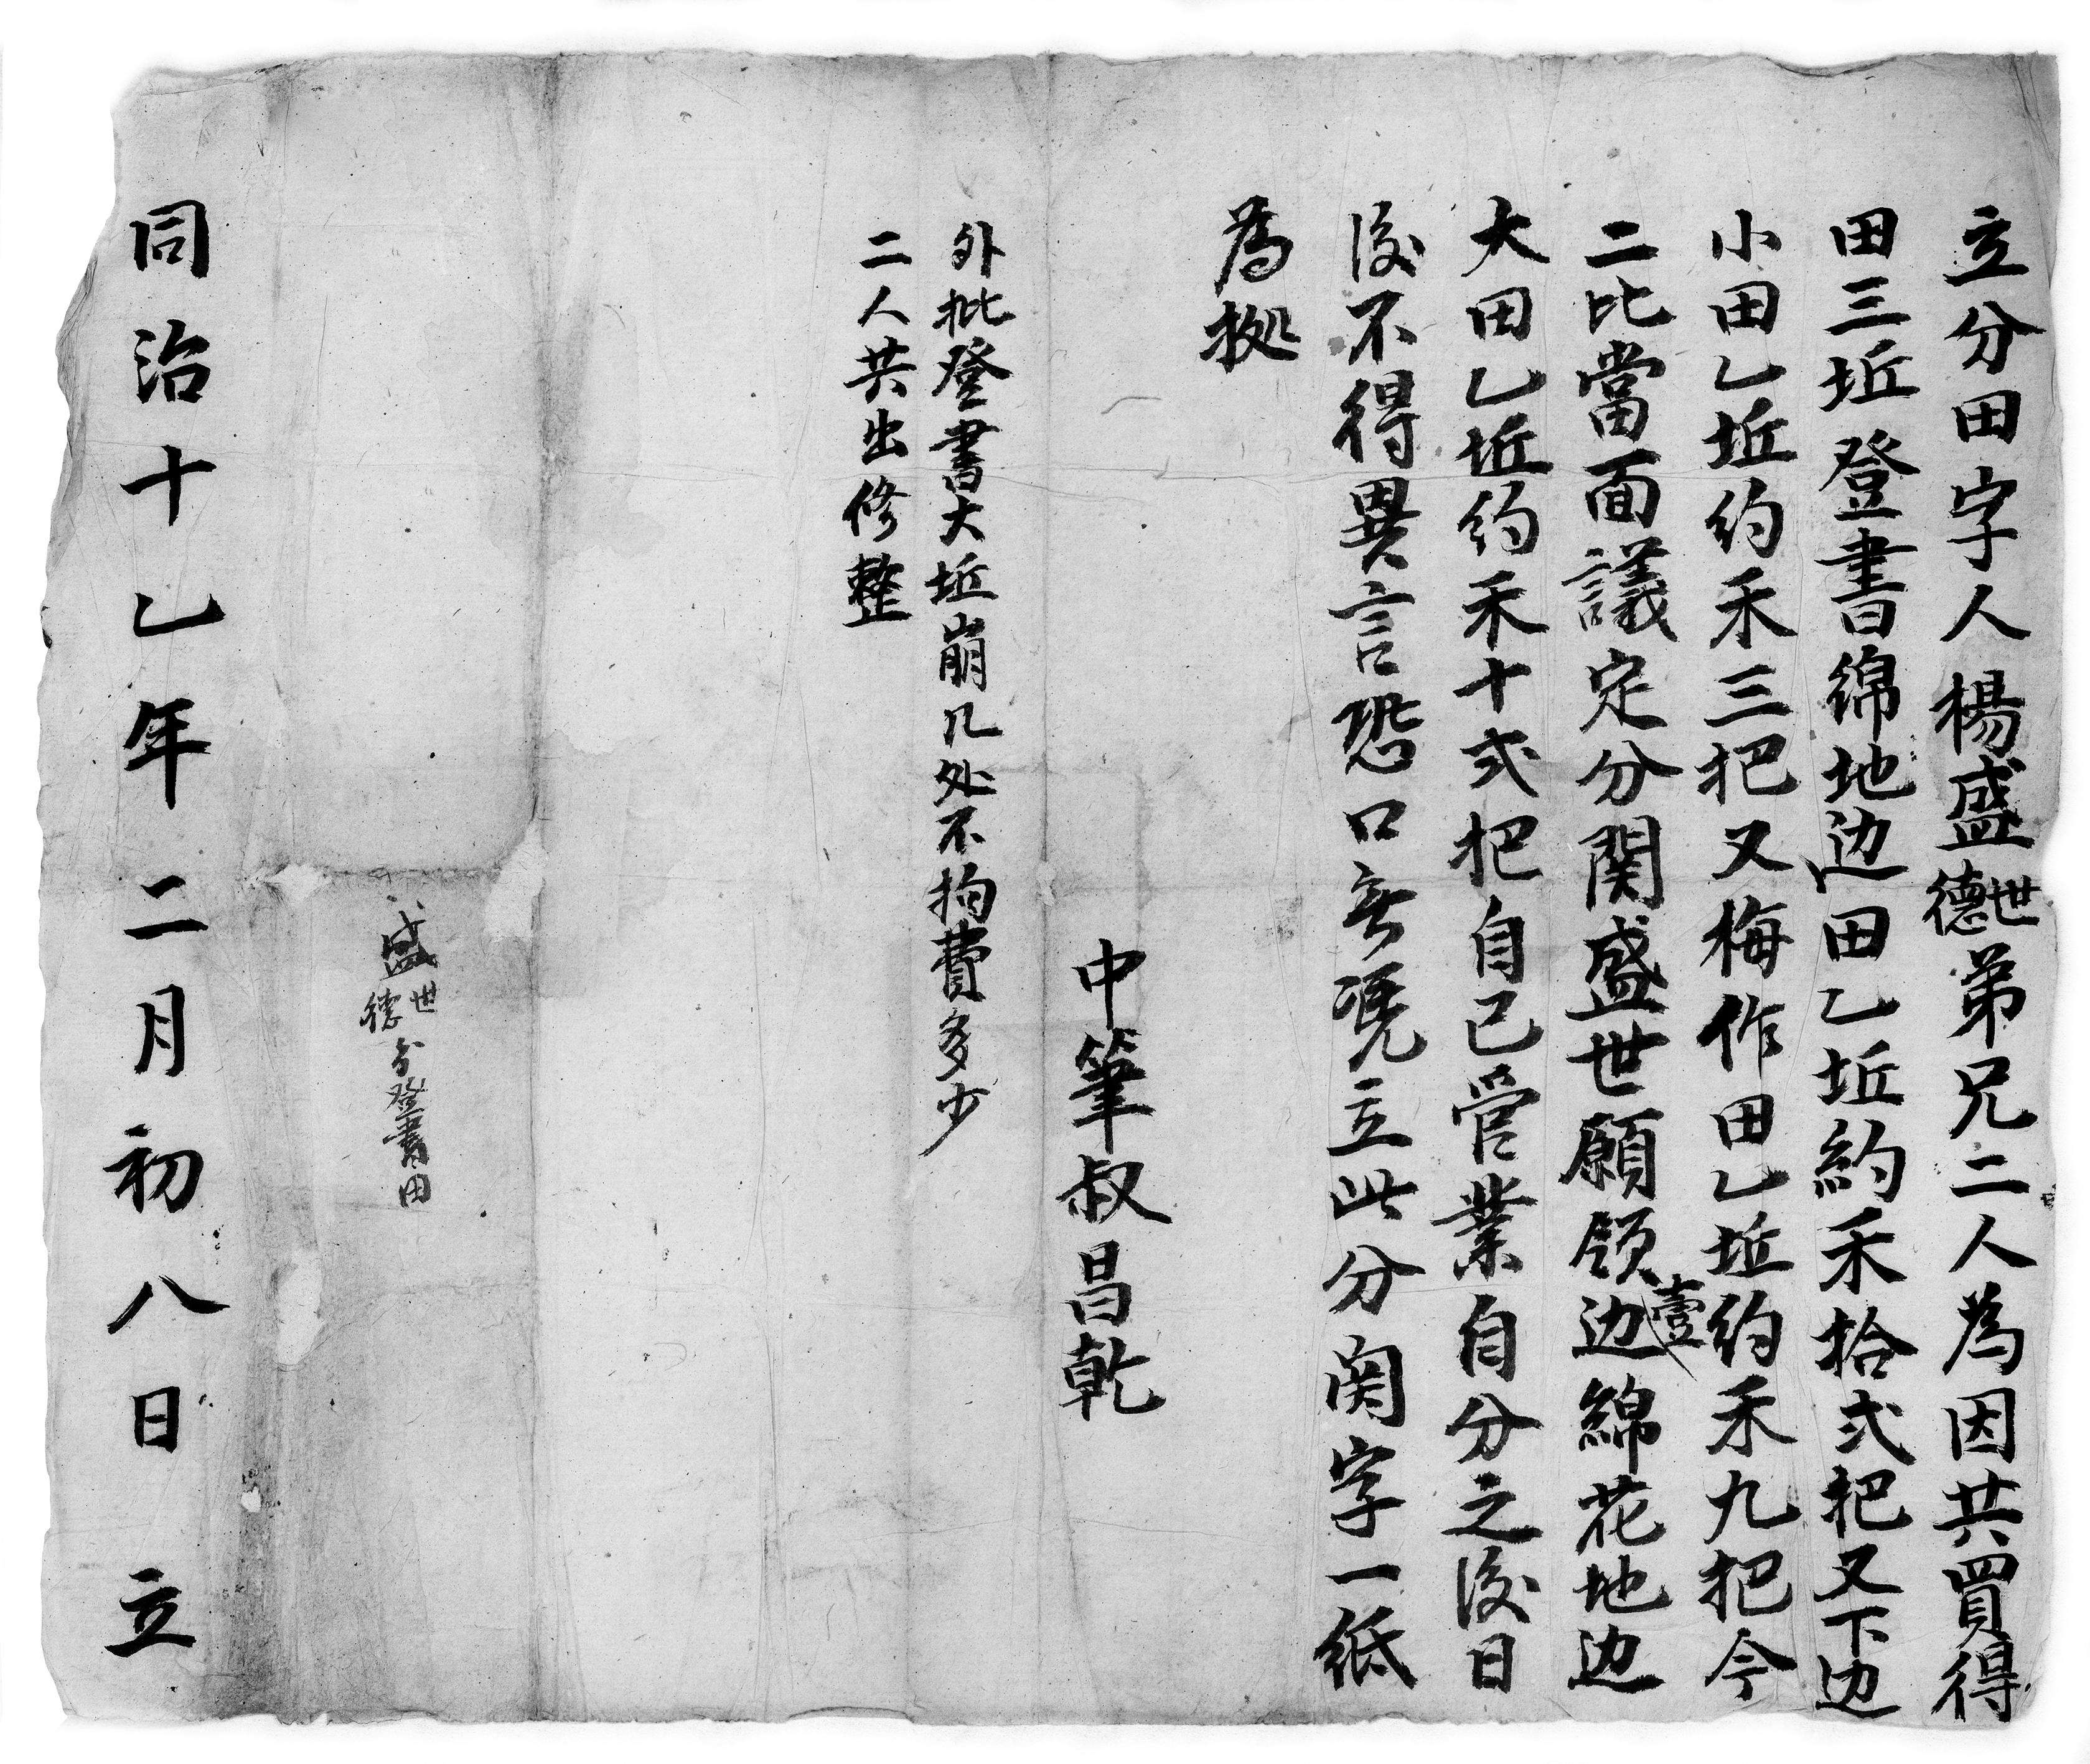 立分田字人楊盛世德弟兄二人為因共買得
田三坵登書綿地边田乙坵約禾拾弍把又下边
小田乙坵約禾三把又梅作田乙坵約禾九把今
二比當面議定分関盛世願領壹边綿花地边
大田乙坵約禾十弍把自己管業自分之後日
後不得異言恐口無凴立此分関字一紙
為拠
中筆叔昌乾
外批登書大坵崩几处不拘費多少
二人共出修整
盛世德分登書田
同治十乙年二月初八日立